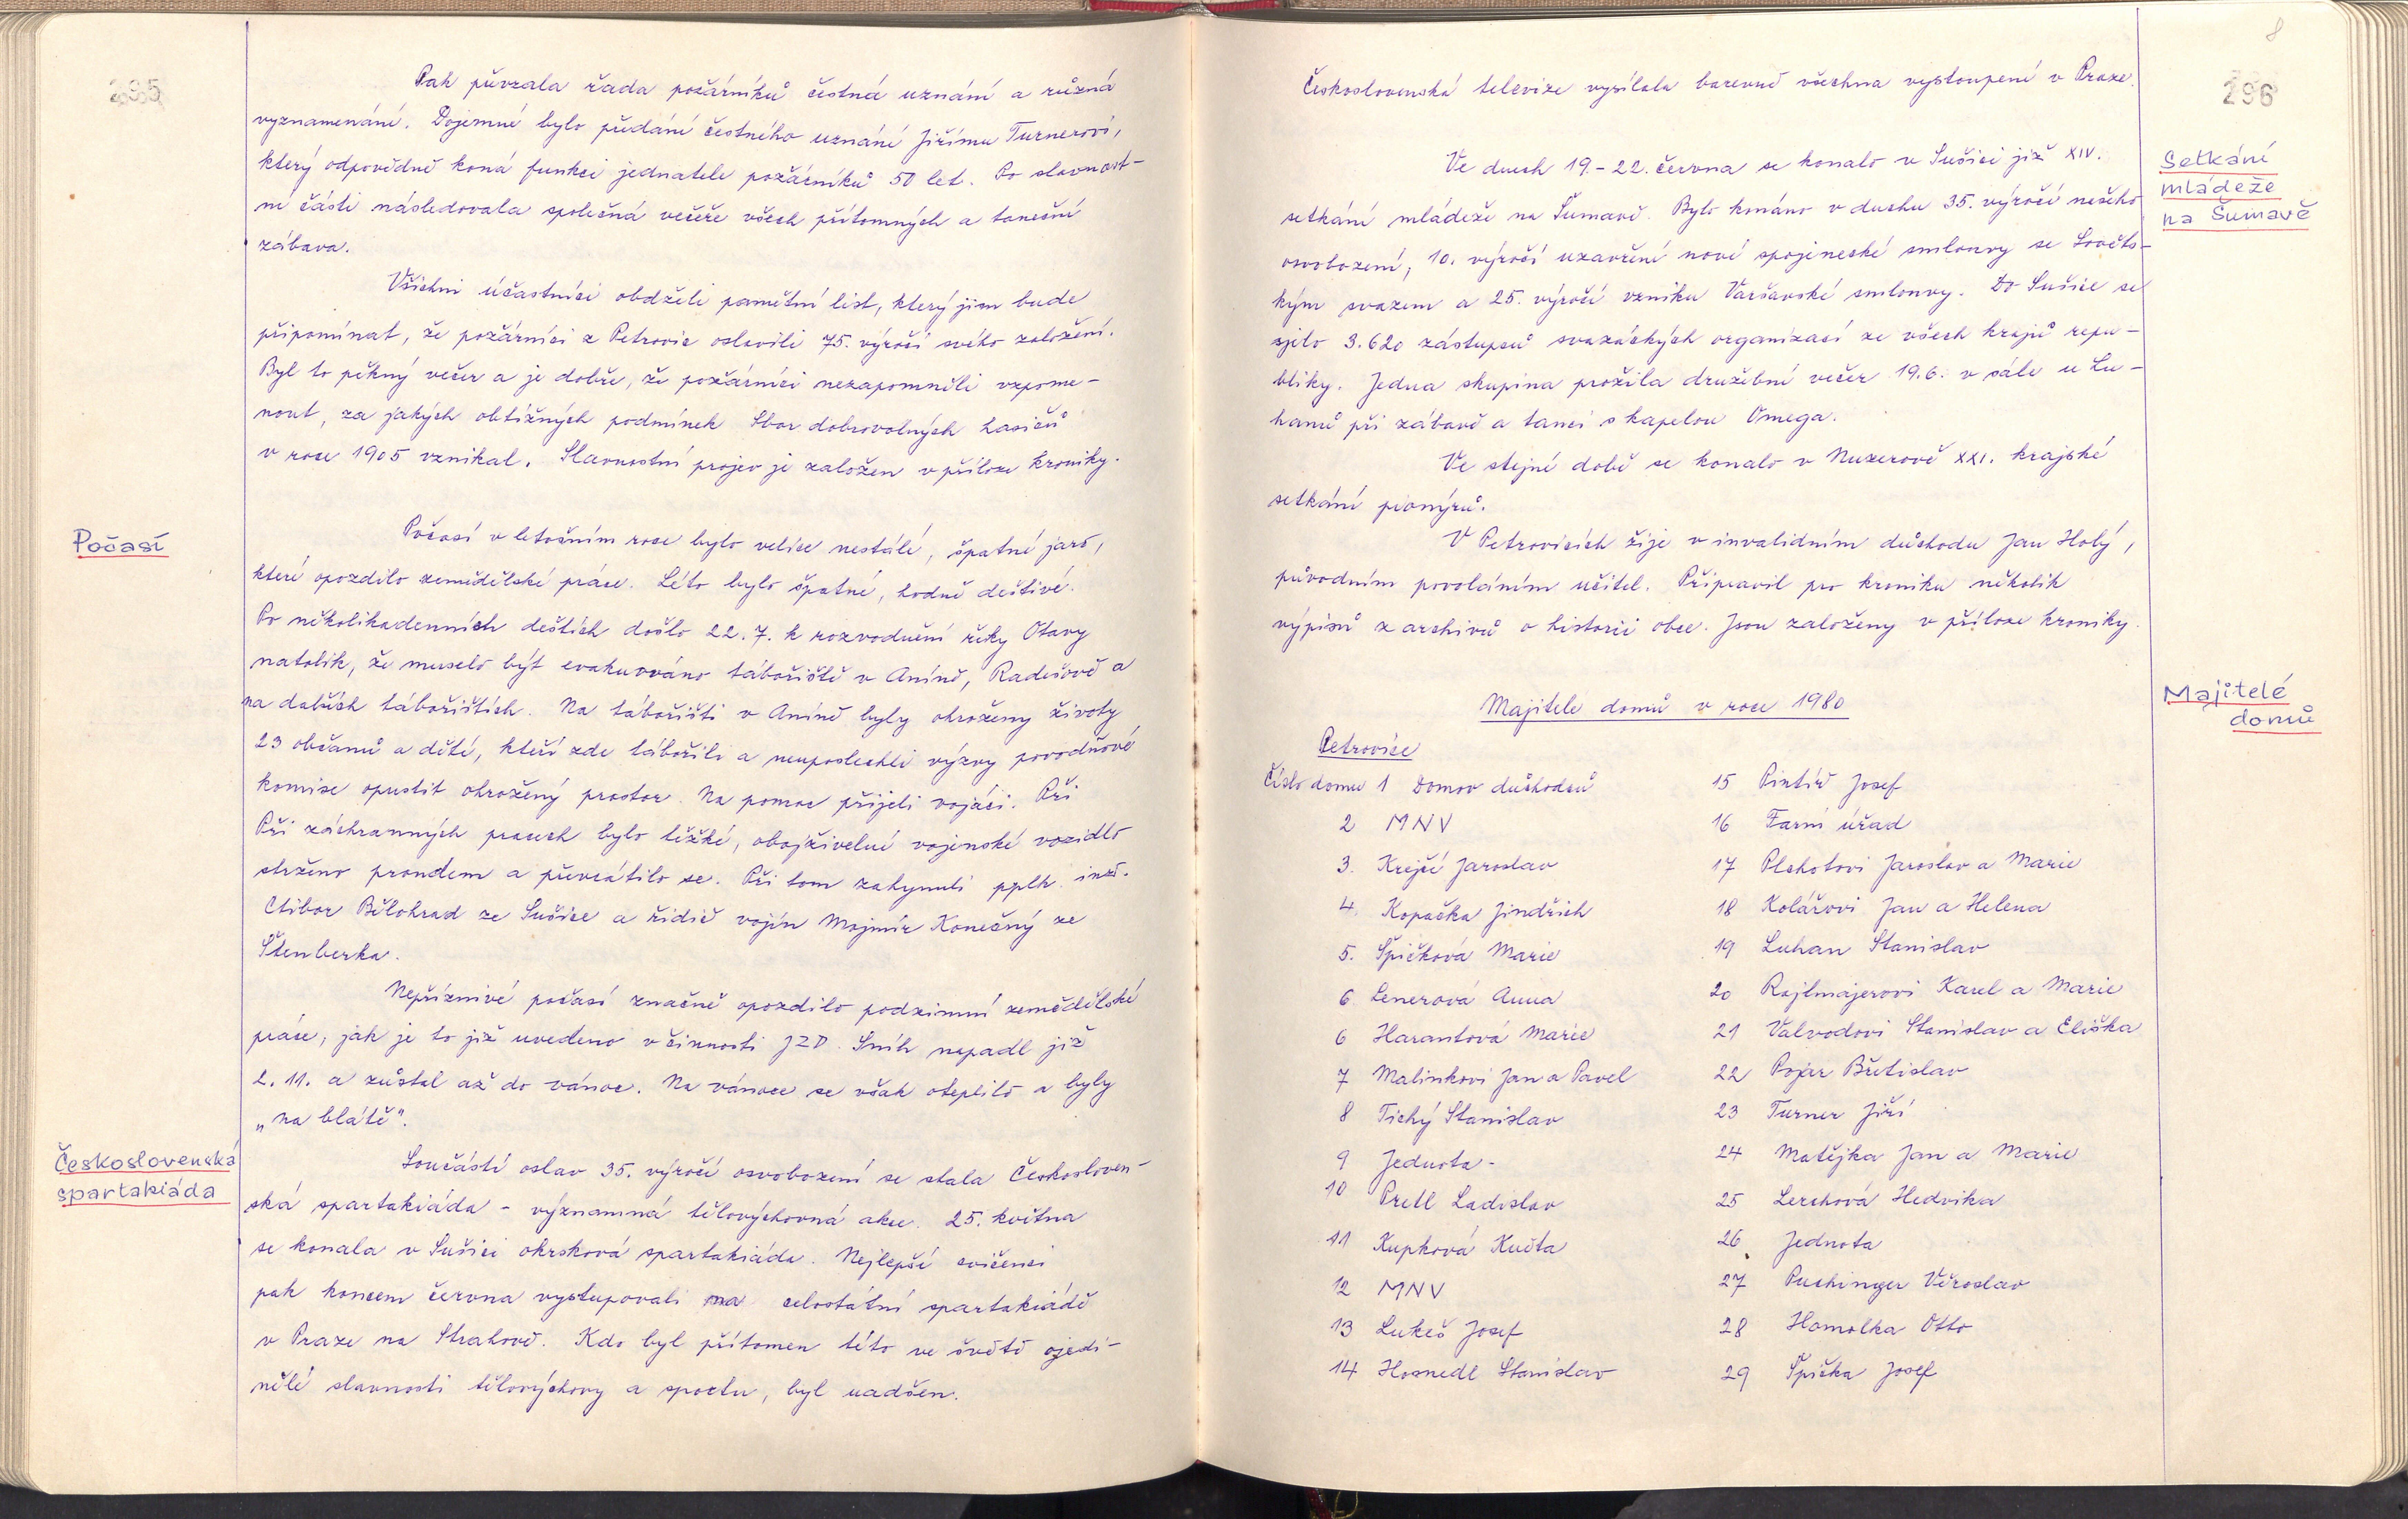 295
Pak převzala řada požárníků čestná uznání a různá
vyznamenání. Dojemné bylo předání čestného uznání Jiřímu Turnerovi,
který odpovědně koná funkci jednatele požárníků 50 let. Po slavnost-
ní části následovala společná večeře všech přítomných a taneční
zábava.
Všichni účastníci obdželi pamětní list, který jim bude
připomínat, že požárníci z Petrovic oslavili 75. výročí svého založení.
Byl to pěkný večer a je dobře, že požárníci nezapomněli vzpome-
nout, za jakých obtížných podmínek Sbor dobrovolných hasičů
v roce 1905 vznikal. Slavnostní projev je založen v příloze kroniky.
Počasí
Počasí v letošním roce bylo velice nestálé, špatné jaro,
které opozdilo zemědělské práce. Léto bylo špatné, hodně deštivé.
Po několikadenních deštích došlo 22.7. k rozvodnění řeky Otavy
natolik, že muselo být evakuováno tábořiště v Aníně, Radešově a
na dalších tábořištích. Na tábořišti v Aníně byly ohroženy životy
23 občanů a dětí, kteří zde tábořili a neuposlechli výzvy povodňové
komise opustit ohrožený prostor. Na pomoc přijeli vojáci. Při
Při záchranných pracech bylo těžké, obojživelné vojenské vozidlo
strženo proudem a převrátilo se. Při tom zahynuli pplk. inž.
Ctibor Bělohrad ze Sušice a řidič vojín Mojmír Konečný ze
Štenberka.
Nepříznivé počasí značně opozdilo podzimní zemědělské
práce, jak je to již uvedeno v činnosti JZD. Sníh napadl již
2.11. a zůstal až do vánoc. Na vánoce se však oteplilo a byly
„na blátě".
Československá
spartakiáda
Součástí oslav 35. výročí osvobození se stala Českosloven-
ská spartakiáda - významná tělovýchovná akce. 25. května
se konala v Sušici okrsková spartakiáda. Nejlepší cvičenci
pak koncem června vystupovali na celostátní spartakiádě
v Praze na Strahově. Kdo byl přítomen této ve světě ojedi-
nělé slavnosti tělovýchovy a sportu, byl nadšen.
8
296
Československá televize vysílala barevně všechna vystoupení v Praze.
Setkání
mládeže
na Šumavě
Ve dnech 19.-22. června se konalo v Sušici již XIV.
setkání mládeže na Šumavě. Bylo konáno v duchu 35. výročí našeho
osvobození, 10. výročí uzavření nové spojenecké smlouvy se Sověts-
kým svazem a 25. výročí vzniku Varšavské smlouvy. Do Sušice se
sjelo 3.620 zástupců svazáckých organizací ze všech krajů repu-
bliky. Jedna skupina prožila družební večer 19.6. v sále u Lu-
hanů při zábavě a tanci s kapelou Omega.
Ve stejné době se konalo v Nuzerově XXI. krajské
setkání pionýrů.
V Petrovicích žije v invalidním důchodu Jan Holý,
původním povoláním učitel. Připravil pro kroniku několik
výpisů z archivů o historii obce. Jsou založeny v příloze kroniky.
Majitelé
domů
Majitelé domů v roce 1980
Petrovice
Číslo domu 1 Domov důchodců
2 MNV
3. Krejčí Jaroslav
4. Kopačka Jindřich
5. Špičková Marie
6. Lenerová Anna
6 Harantová Marie
7 Malinkovi Jan a Pavel
8 Tichý Stanislav
9 Jednota-
10 Pretl Ladislav
11 Kupková Květa
12 MNV
13 Lukeš Josef
14 Hosnedl Stanislav
15 Pintíř Josef
16 Farní úřad
17 Plchotovi Jaroslav a Marie
18 Kolářovi Jan a Helena
19 Luhan Stanislav
20 Rajlmajerovi Karel a Marie
21 Valvodovi Stanislav a Eliška
22 Pojar Břetislav
23 Turner Jiří
24 Matějka Jan a Marie
25 Lerchová Hedvika
26 Jednota
27 Puchinger Věroslav
28 Homolka Otto
29 Špička Josef